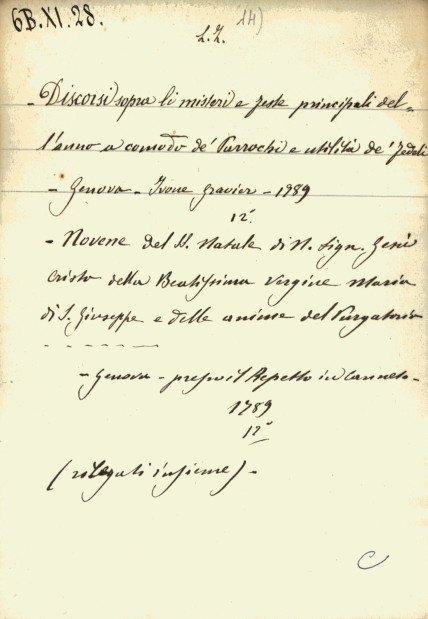 6B.XI.28.
14)
L.Z.
- Discorsi sopra li misteri e feste principali del-
l'anno a comodo de' Parrochi e utilità de' fedeli
- Genova - Ivone Gravier - 1789
12°
- Novene del SS. Natale di N. Sign. Gesù
Cristo della Beatissima Vergine Maria
di S. Giuseppe e delle anime del Purgatorio
- Genova - presso il Repetto in Canneto -
1789
12°
(rilegati insieme) -
C